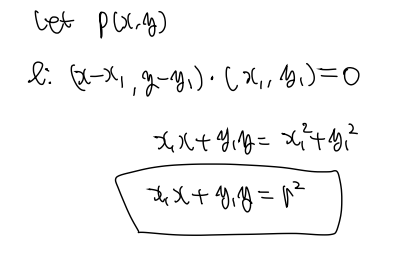 let P(x,y)
l: (x-x₁, y-y₁)·(x₁, y₁)=0
x₁x+y₁y= x₁²+y₁²
x₁x+y₁y=r²